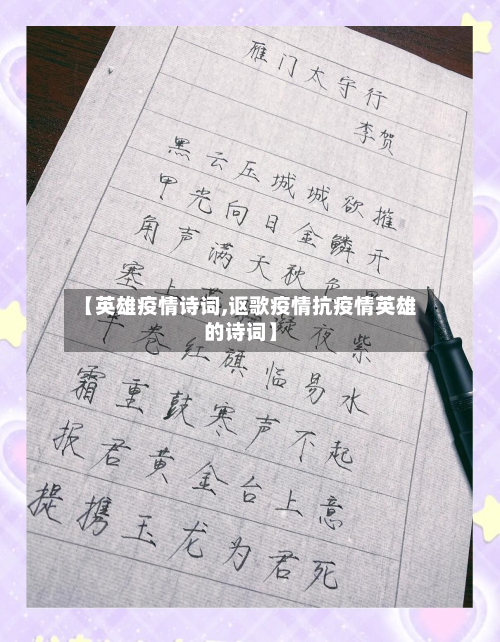 雁门太守行
李贺
黑云压城城欲摧
甲光向日金鳞开
角声满天秋色
塞上 凝夜紫
【英雄疫情诗词,讴歌疫情抗疫情英雄
的诗词】
半卷红旗临易水
霜重鼓寒声不起
报君黄金台上意
提携玉龙为君死